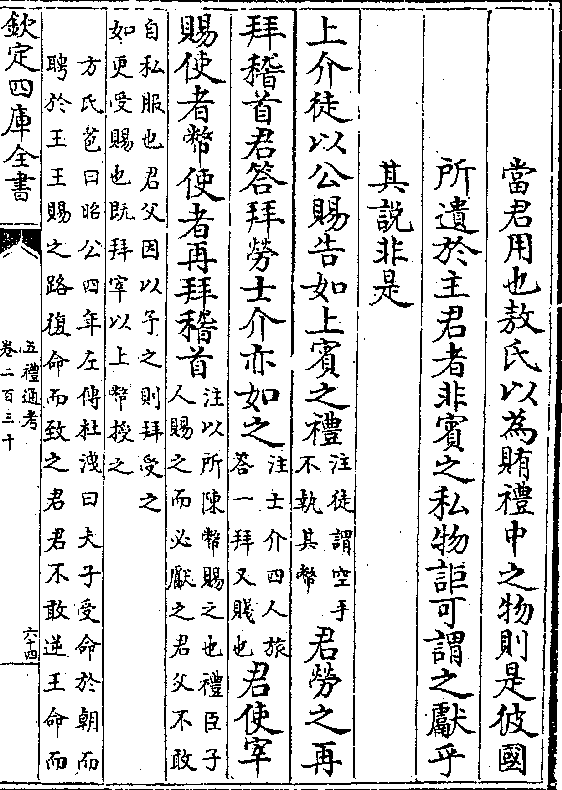 當君用也敖氏以為賄禮中之物則是彼國
所遺於主君者非賓之私物詎可謂之獻乎
其說非是
上介徒以公賜告如上賓之禮
注徒謂空手
不執其幣
君勞之再
拜稽首君答拜勞士介亦如之
注士介四人旅
答一拜又賤也
君使宰
賜使者幣使者再拜稽首
注以所陳幣賜之也禮臣子
人賜之而必獻之君父不敢
自私服也君父因以予之則拜受之
如更受賜也既拜宰以上幣授之
方氏苞曰昭公四年左傳杜洩曰夫子受命於朝而
聘於王王賜之路復命而致之君君不敢逆王命而
欽定四庫全書
五禮通考
卷二百三十
六十四